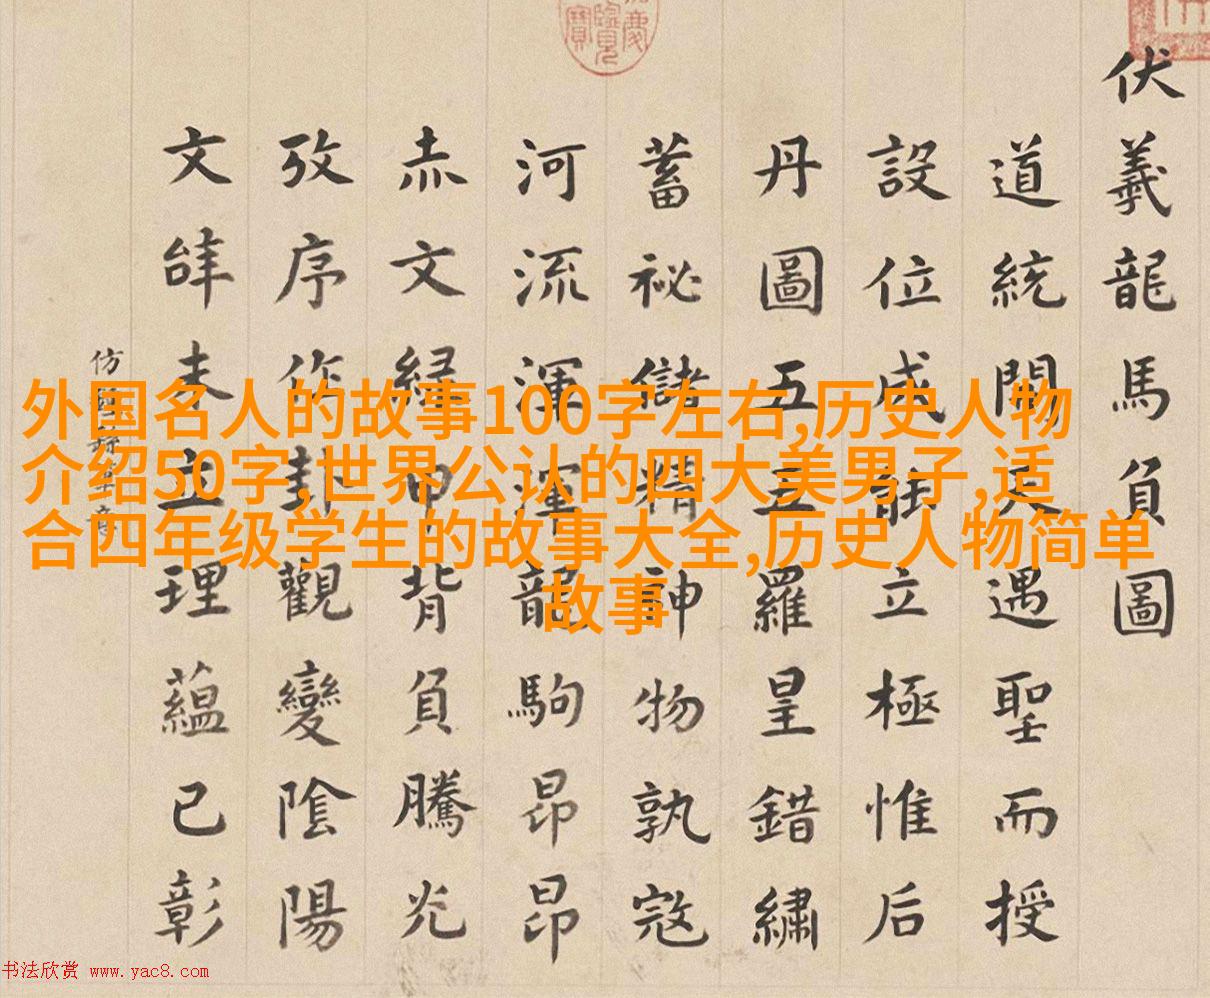 伏羲龍馬負圖
道統開天遇聖而授
設位成能立極惟后
丹圖五五羅皇錯繡
蓄祕儲精神物孰寇
河流渾渾龍駒昂昂
赤文緑甲背負騰光
攷序作卦觀變陰陽
文辭未立理蘊已彰
仿
外国名人的故事100字左右,历史人物
介绍50字,世界公认的四大美男子,适
合四年级学生的故事大全,历史人物简单
故事
书法欣赏 www.yac8.com